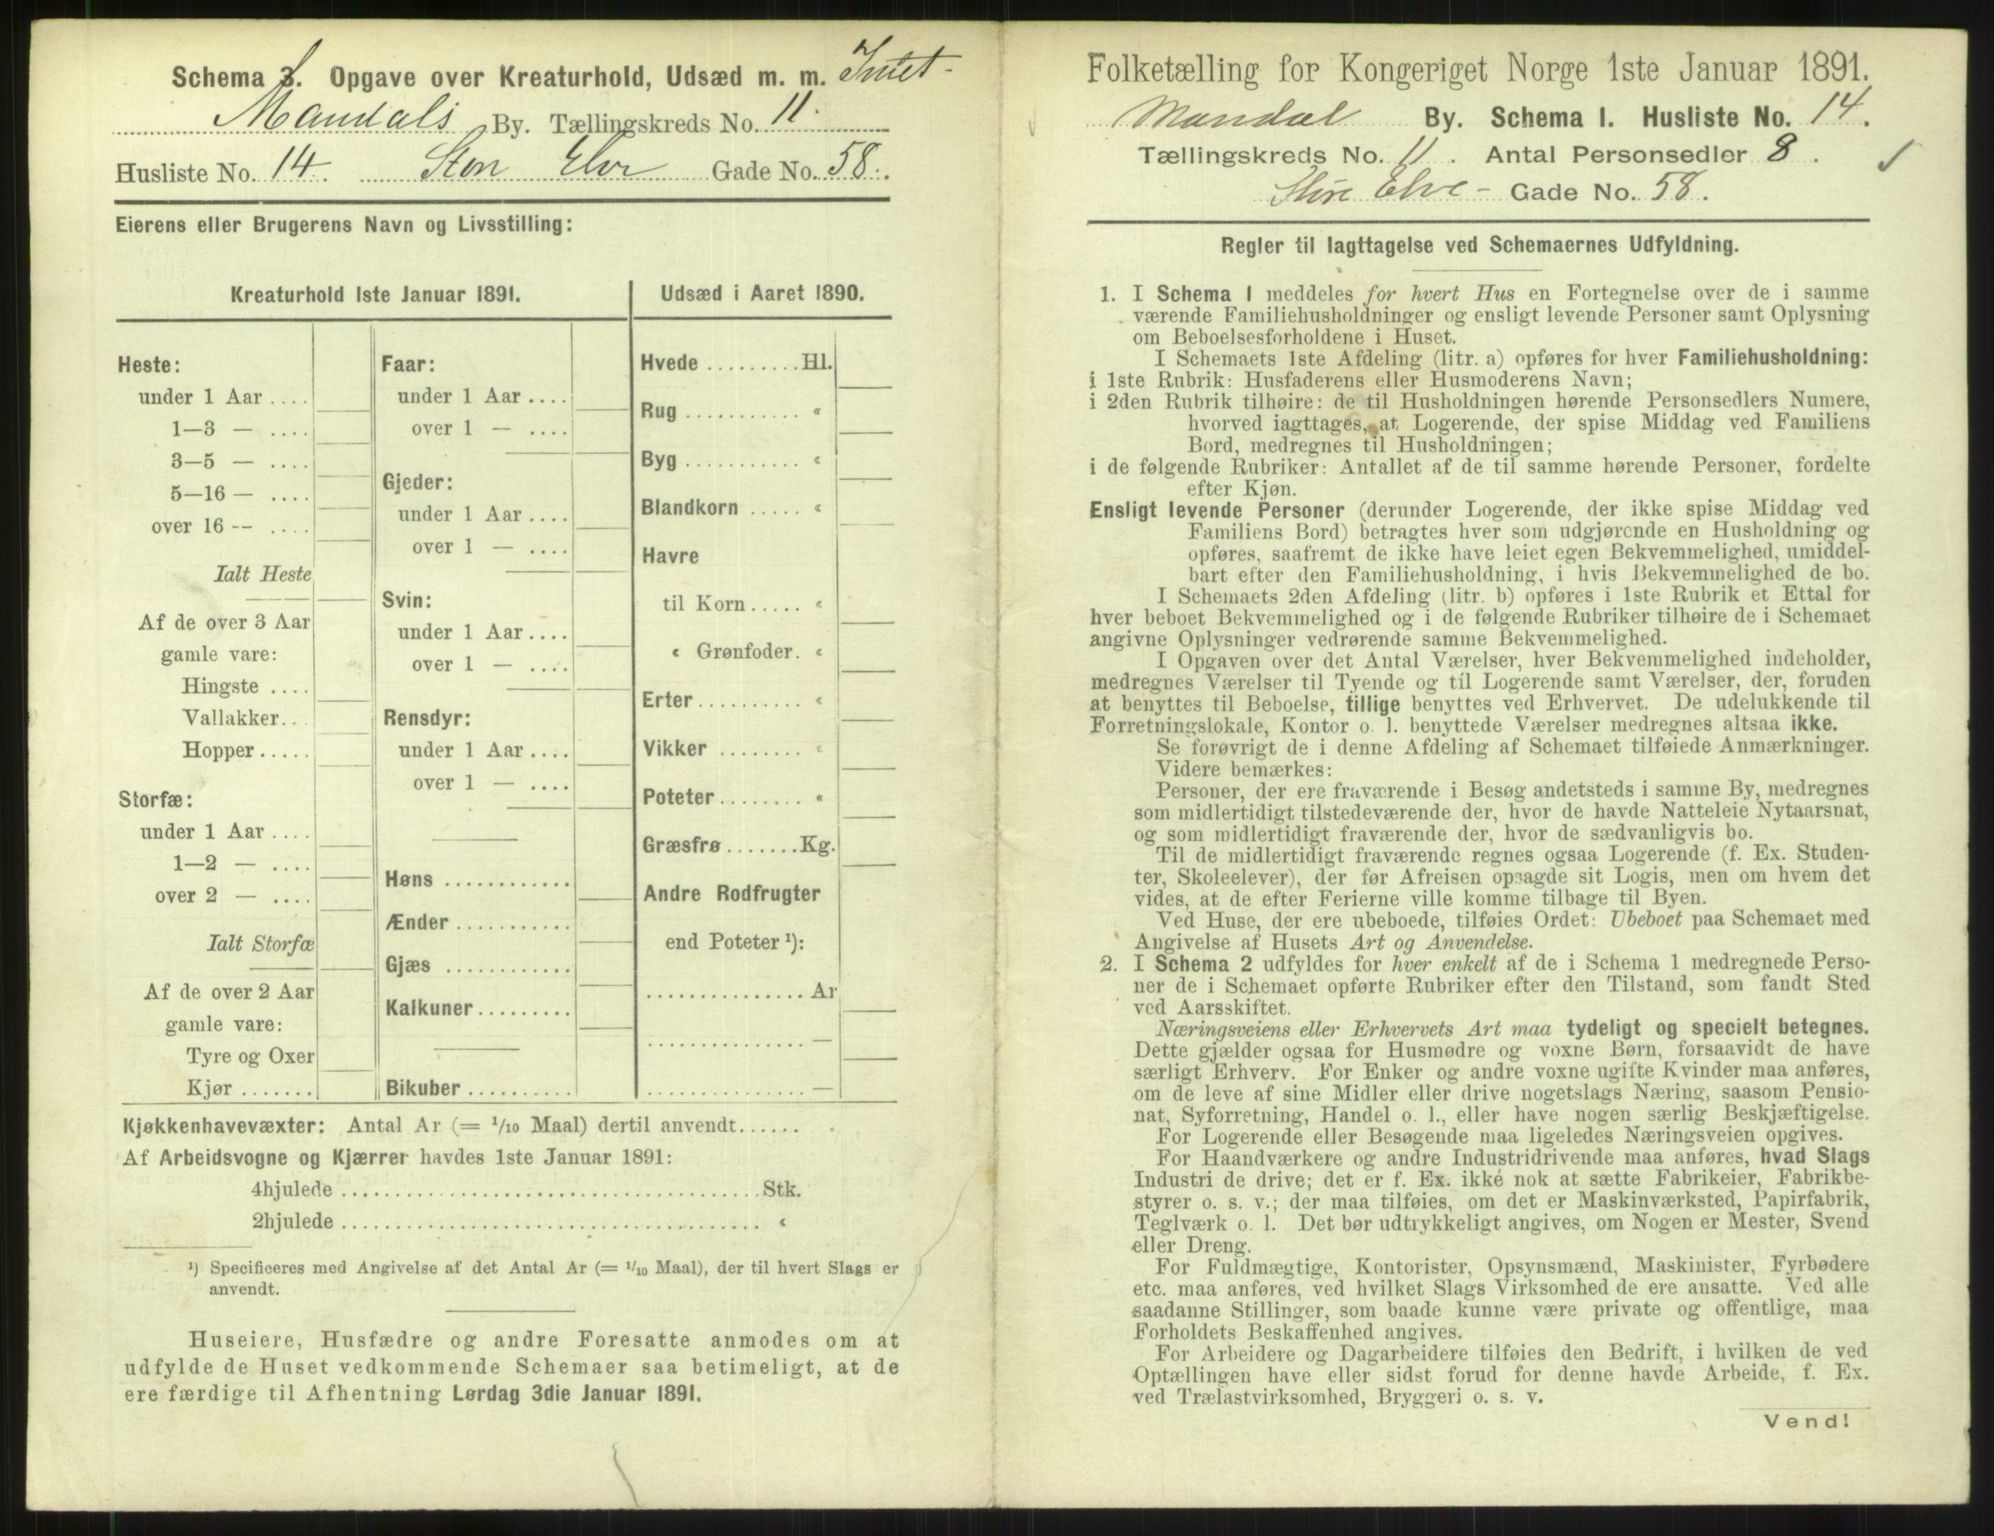 Schema 3. Opgave over Kreaturhold, Udsæd m. m. Intet-
Mandals By. Tællingskreds No. 11.
Husliste No. 14. Stor Elve Gade No. 58.
Eierens eller Brugerens Navn og Livsstilling:
Kreaturhold 1ste Januar 1891.
Heste:
under 1 Aar ....
1—3 — ....
3—5 — ....
5—16 — ....
over 16 -- ....
Ialt Heste
Af de over 3 Aar
gamle vare:
Hingste ....
Vallakker...
Hopper .....
Storfæ:
under 1 Aar ....
1—2 — ....
over 2 — ....
Ialt Storfæ
Af de over 2 Aar
gamle vare:
Tyre og Oxer
Kjør .......
Faar:
under 1 Aar ....
over 1 — ....
Gjeder:
under 1 Aar ....
over 1 — ....
Svin:
under 1 Aar ....
over 1 — ....
Rensdyr:
under 1 Aar ....
over 1 — ....
Høns ............
Ænder ...........
Gjæs ............
Kalkuner.........
Bikuber ..........
Udsæd i Aaret 1890.
Hvede .........Hl.
Rug .......... «
Byg ........... «
Blandkorn ..... «
Havre
til Korn ..... «
« Grønfoder. «
Erter .......... «
Vikker ........ «
Poteter ........ «
Græsfrø .......Kg.
Andre Rodfrugter
end Poteter ¹):
............... Ar
............... —
............... —
Kjøkkenhavevæxter: Antal Ar (= 1/10 Maal) dertil anvendt......
Af Arbeidsvogne og Kjærrer havdes 1ste Januar 1891:
4hjulede ........................................ Stk.
2hjulede ........................................ «
¹) Specificeres med Angivelse af det Antal Ar (= 1/10 Maal), der til hvert Slags er
anvendt.
Huseiere, Husfædre og andre Foresatte anmodes om at
udfylde de Huset vedkommende Schemaer saa betimeligt, at de
ere færdige til Afhentning Lørdag 3die Januar 1891.
Folketælling for Kongeriget Norge 1ste Januar 1891.
Mandal By. Schema I. Husliste No. 14.
Tællingskreds No. 11. Antal Personsedler 8.
Store Elve- Gade No. 58.
Regler til Iagttagelse ved Schemaernes Udfyldning.
1. I Schema 1 meddeles for hvert Hus en Fortegnelse over de i samme
værende Familiehusholdninger og ensligt levende Personer samt Oplysning
om Beboelsesforholdene i Huset.
I Schemaets 1ste Afdeling (litr. a) opføres for hver Familiehusholdning:
i 1ste Rubrik: Husfaderens eller Husmoderens Navn;
i 2den Rubrik tilhøire: de til Husholdningen hørende Personsedlers Numere,
hvorved iagttages, at Logerende, der spise Middag ved Familiens
Bord, medregnes til Husholdningen;
i de følgende Rubriker: Antallet af de til samme hørende Personer, fordelte
efter Kjøn.
Ensligt levende Personer (derunder Logerende, der ikke spise Middag ved
Familiens Bord) betragtes hver som udgjørende en Husholdning og
opføres, saafremt de ikke have leiet egen Bekvemmelighed, umiddel-
bart efter den Familiehusholdning, i hvis Bekvemmelighed de bo.
I Schemaets 2den Afdeling (litr. b) opføres i 1ste Rubrik et Ettal for
hver beboet Bekvemmelighed og i de følgende Rubriker tilhøire de i Schemaet
angivne Oplysninger vedrørende samme Bekvemmelighed.
I Opgaven over det Antal Værelser, hver Bekvemmelighed indeholder,
medregnes Værelser til Tyende og til Logerende samt Værelser, der, foruden
at benyttes til Beboelse, tillige benyttes ved Erhvervet. De udelukkende til
Forretningslokale, Kontor o. l. benyttede Værelser medregnes altsaa ikke.
Se forøvrigt de i denne Afdeling af Schemaet tilføiede Anmærkninger.
Videre bemærkes:
Personer, der ere fraværende i Besøg andetsteds i samme By, medregnes
som midlertidigt tilstedeværende der, hvor de havde Natteleie Nytaarsnat,
og som midlertidigt fraværende der, hvor de sædvanligvis bo.
Til de midlertidigt fraværende regnes ogsaa Logerende (f. Ex. Studen-
ter, Skoleelever), der før Afreisen opsagde sit Logis, men om hvem det
vides, at de efter Ferierne ville komme tilbage til Byen.
Ved Huse, der ere ubeboede, tilføies Ordet: Ubeboet paa Schemaet med
Angivelse af Husets Art og Anvendelse.
2. I Schema 2 udfyldes for hver enkelt af de i Schema 1 medregnede Perso-
ner de i Schemaet opførte Rubriker efter den Tilstand, som fandt Sted
ved Aarsskiftet.
Næringsveiens eller Erhvervets Art maa tydeligt og specielt betegnes.
Dette gjælder ogsaa for Husmødre og voxne Børn, forsaavidt de have
særligt Erhverv. For Enker og andre voxne ugifte Kvinder maa anføres,
om de leve af sine Midler eller drive nogetslags Næring, saasom Pensio-
nat, Syforretning, Handel o. l., eller have nogen særlig Beskjæftigelse.
For Logerende eller Besøgende maa ligeledes Næringsveien opgives.
For Haandværkere og andre Industridrivende maa anføres, hvad Slags
Industri de drive; det er f. Ex. ikke nok at sætte Fabrikeier, Fabrikbe-
styrer o. s. v.; der maa tilføies, om det er Maskinværksted, Papirfabrik,
Teglværk o. l. Det bør udtrykkeligt angives, om Nogen er Mester, Svend
eller Dreng.
For Fuldmægtige, Kontorister, Opsynsmænd, Maskinister, Fyrbødere
etc. maa anføres, ved hvilket Slags Virksomhed de ere ansatte. Ved alle
saadanne Stillinger, som baade kunne være private og offentlige, maa
Forholdets Beskaffenhed angives.
For Arbeidere og Dagarbeidere tilføies den Bedrift, i hvilken de ved
Optællingen have eller sidst forud for denne havde Arbeide, f. Ex.
ved Trælastvirksomhed, Bryggeri o. s. v.
Vend!